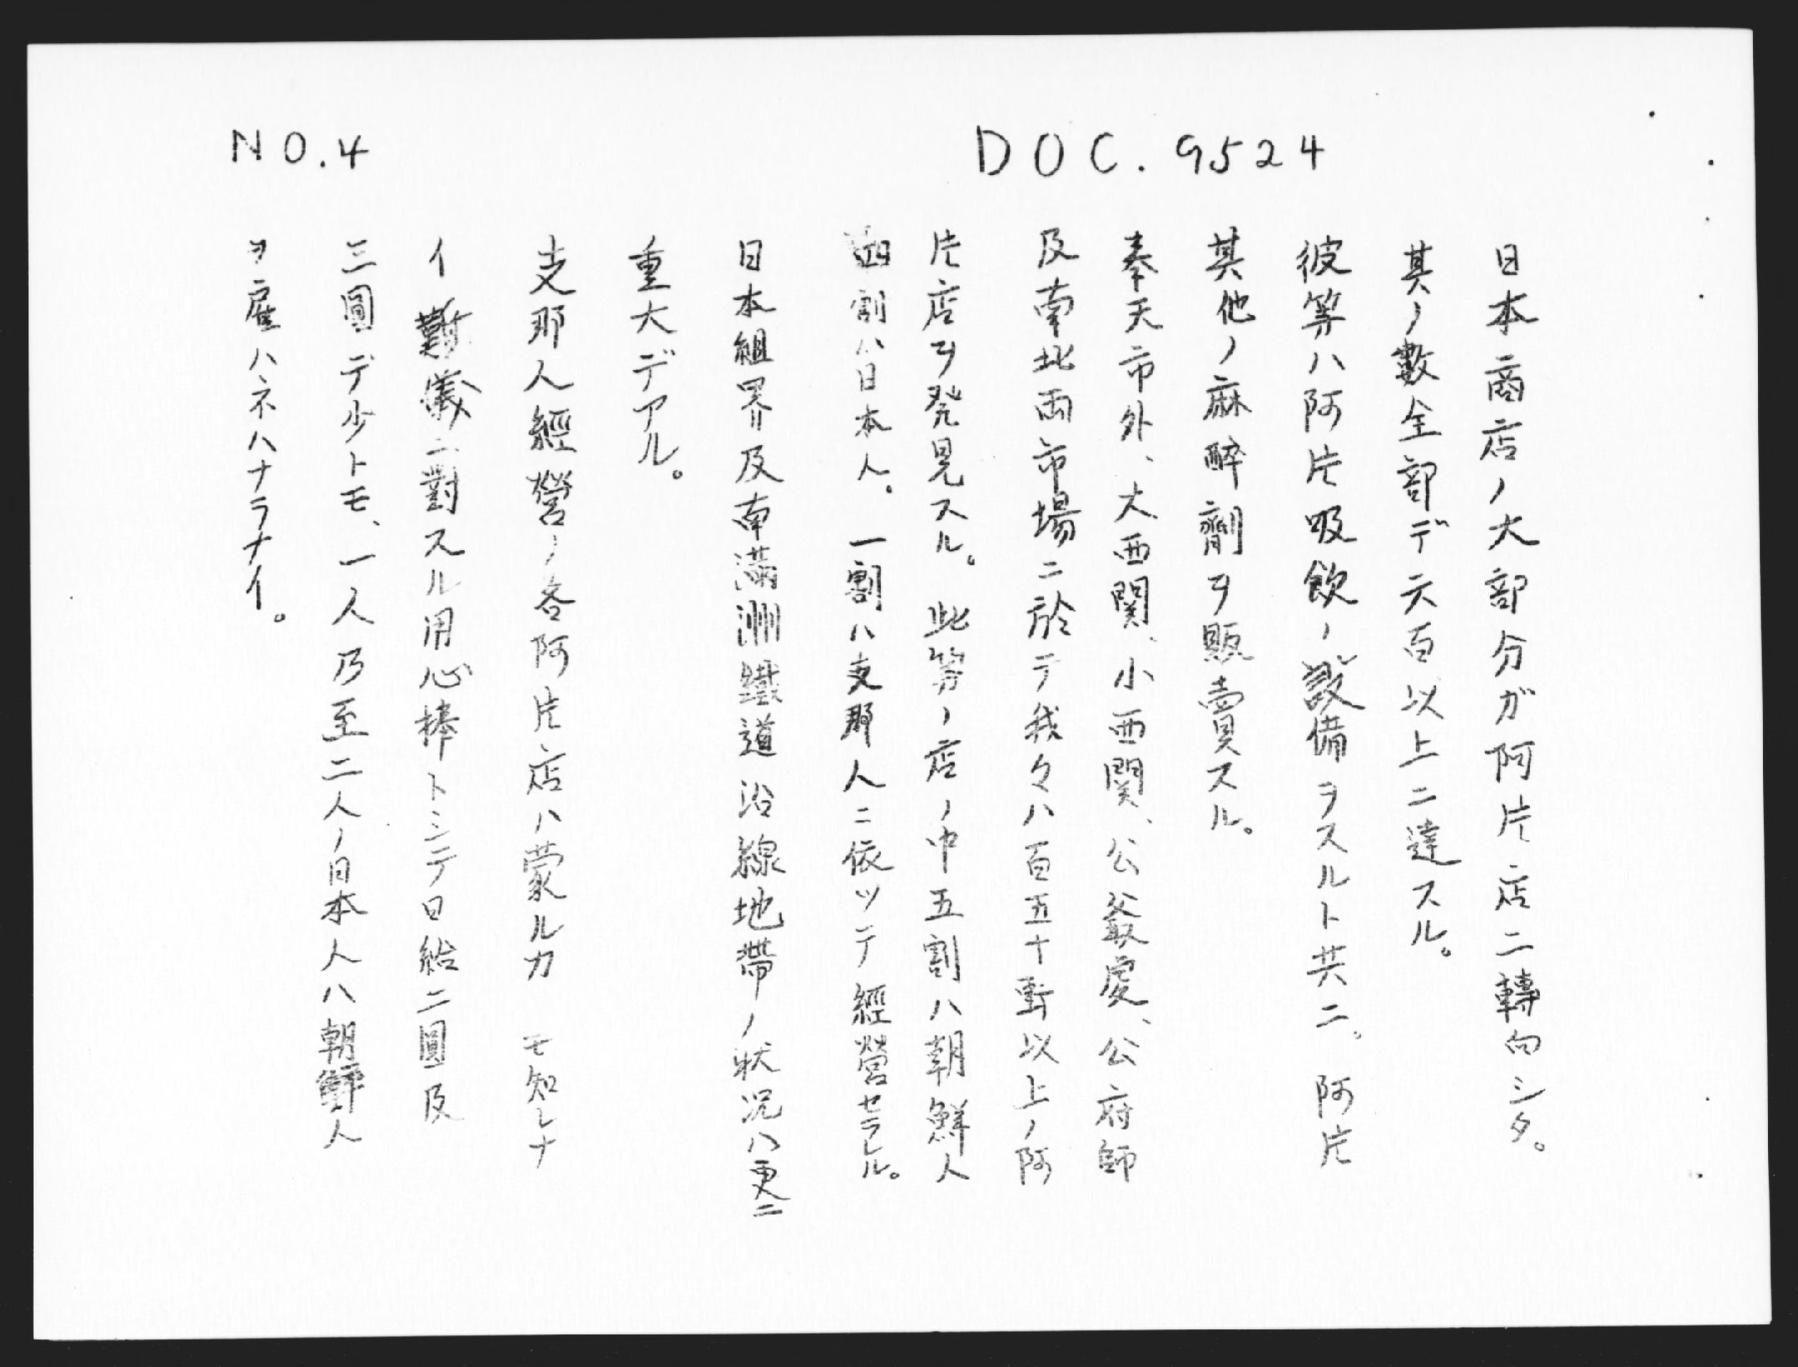 DOC. 9524
NO.4
日本商店ノ大部分ガ阿片店ニ轉向シタ。
其ノ數全部デ六百以上ニ達スル。
彼等ハ阿片吸飲ノ設備ヲスルト共ニ。阿片
其他ノ麻醉劑ヲ販賣スル。
奉天市外、大西関、小西関、公 處、公府師
及南北両市場ニ於テ我々ハ百五十軒以上ノ阿
片店ヲ発見スル。此等ノ店ノ中五割ハ朝鮮人
四割ハ日本人。一割ハ支那人ニ依ツテ經營セラレル。
日本組界及南満洲鐵道沿線地帶ノ状況ハ更ニ
重大デアル。
支那人經營ノ各阿片店ハ蒙ルカモ知レナ
イ難儀ニ對スル用心棒トシテ日給二圓及
三圓デ少トモ、一人乃至二人ノ日本人ハ朝鮮人
ヲ雇ハネハナラナイ。